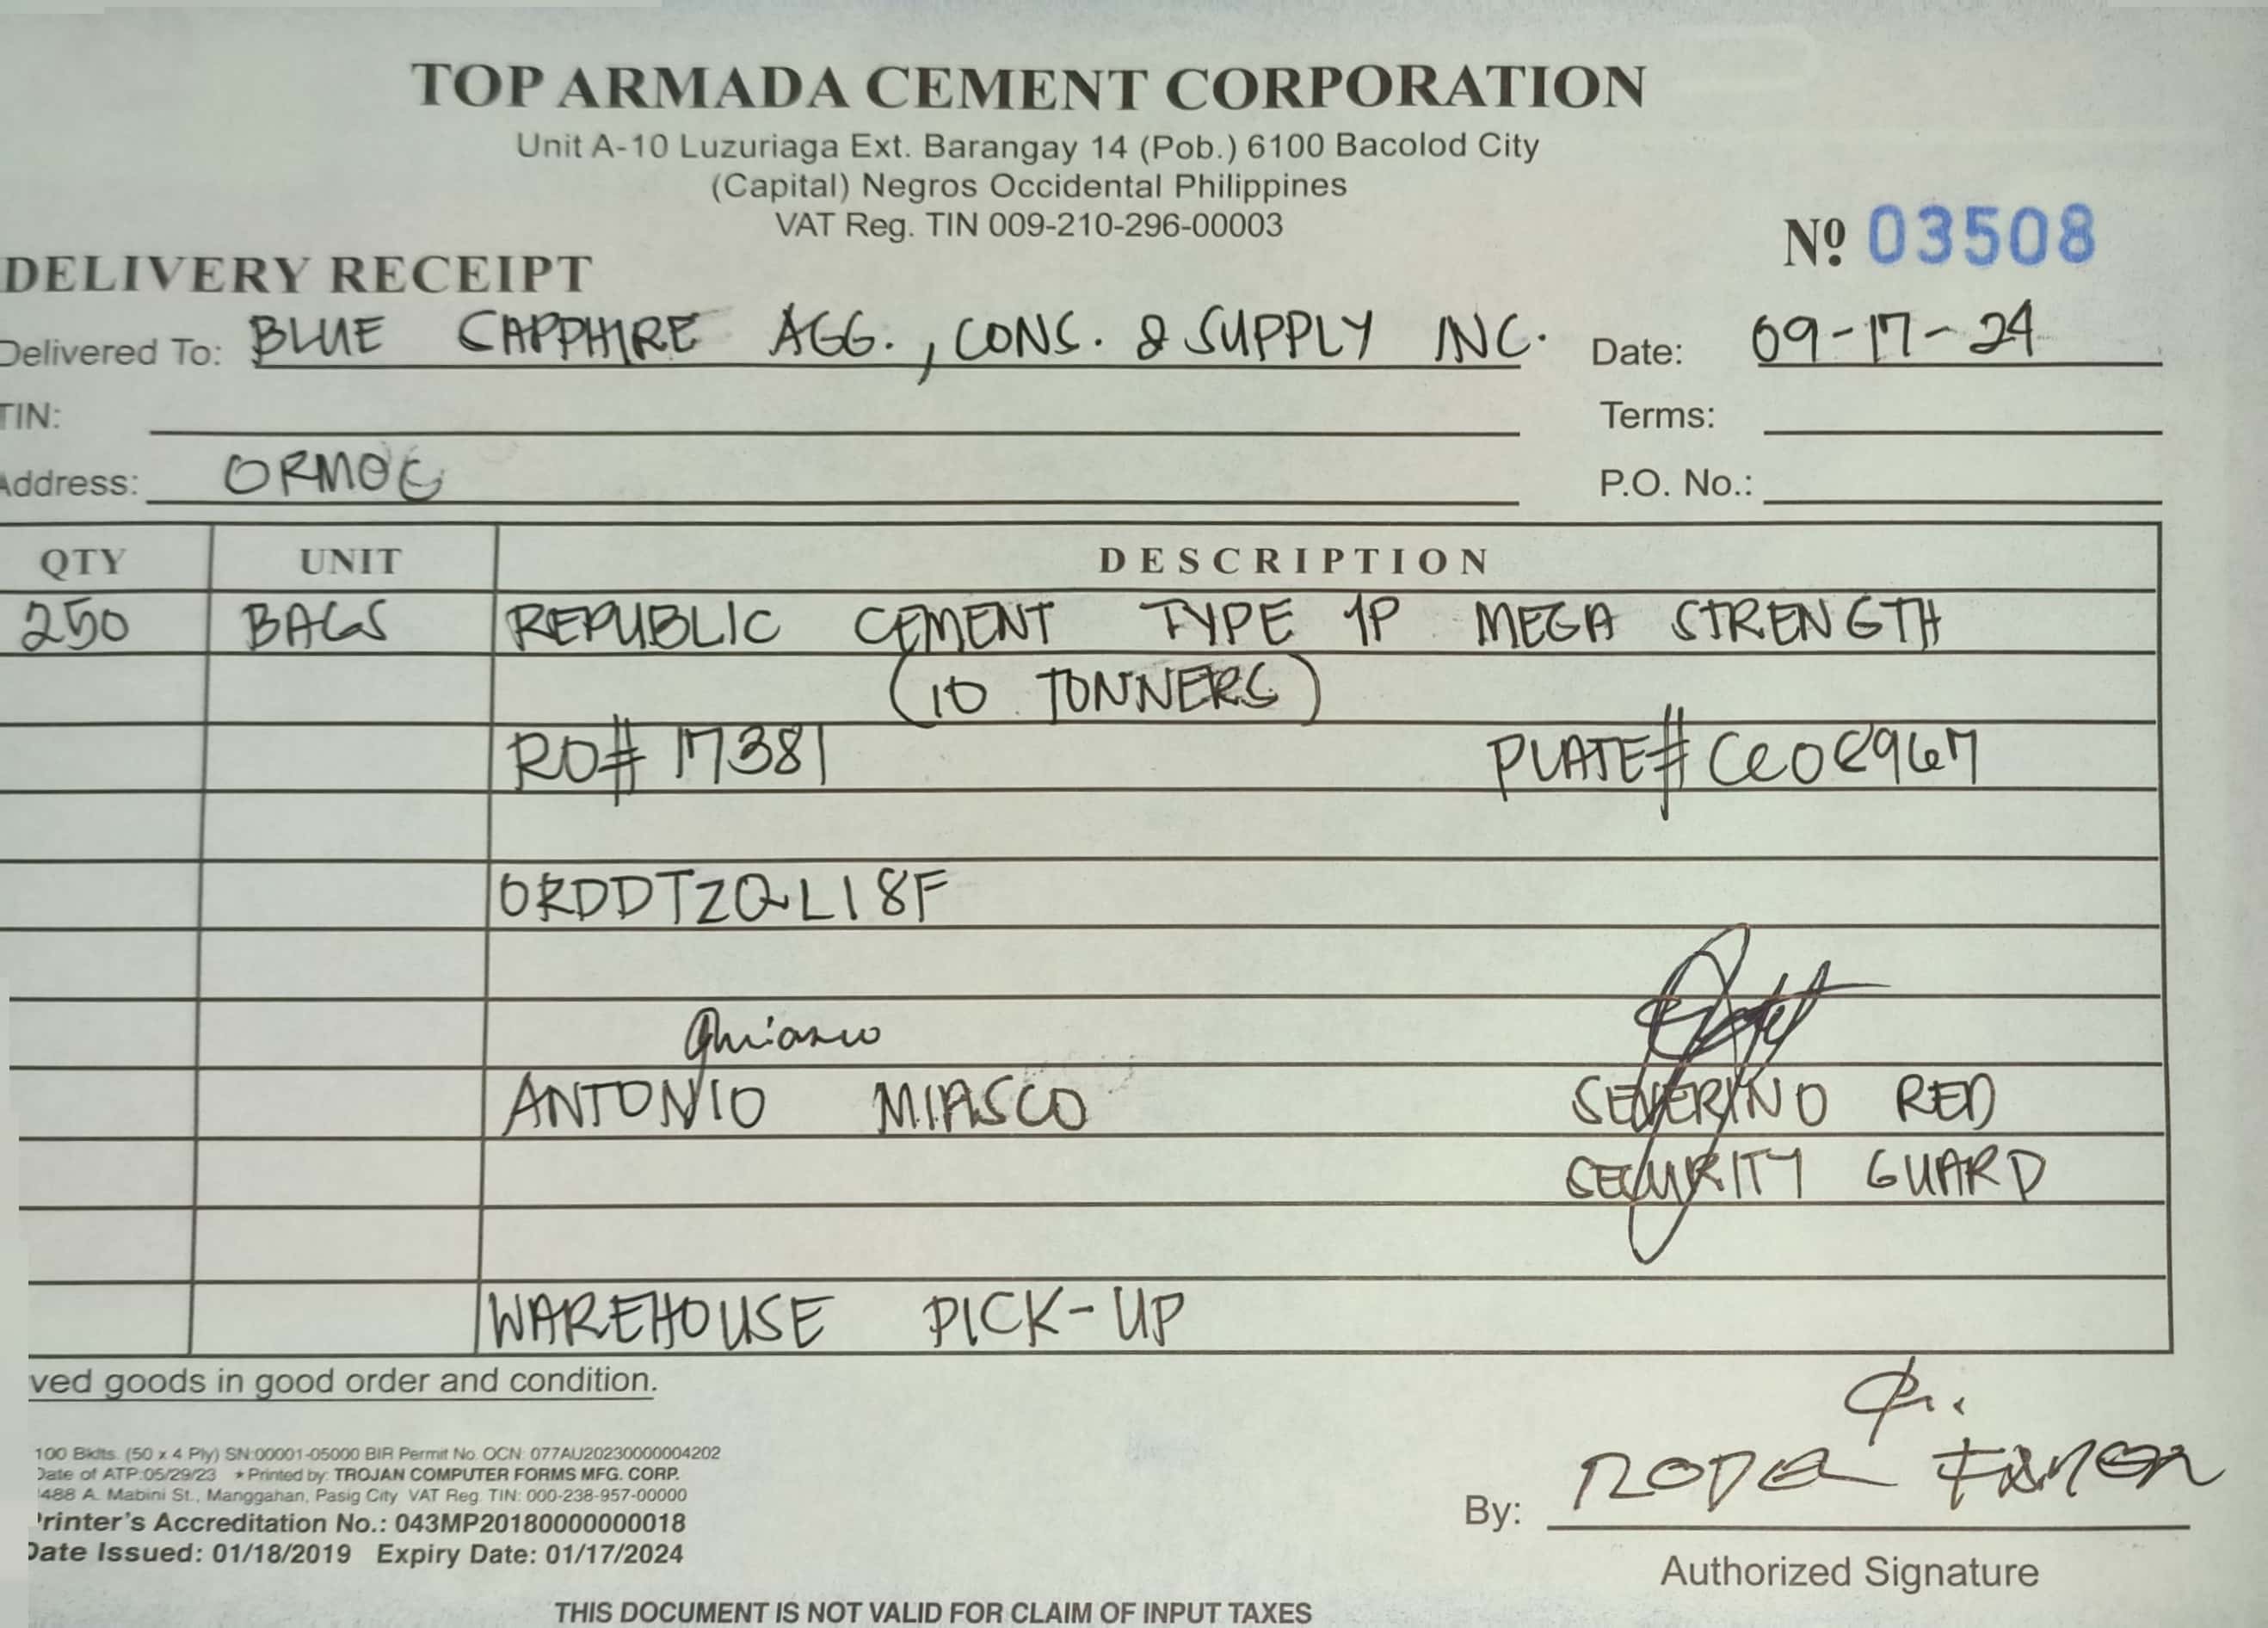 TOP ARMADA CEMENT CORPORATION
Unit A-10 Luzuriaga Ext. Barangay 14 (Pob.) 6100 Bacolod City
(Capital) Negros Occidental Philippines
VAT Reg. TIN 009-210-296-00003
Nº 03508
DELIVERY RECEIPT
Delivered To: BLUE CAPPHIRE AGG., CONS. & SUPPLY INC. Date: 09-17-24
TIN: Terms:
Address: ORMOC P.O. No.:
QTY UNIT DESCRIPTION
250 BAGS REPUBLIC CEMENT TYPE 1P MEGA STRENGTH
(10 TONNERS)
RO# 17381 PLATE#
ORDDTZQL18F
ANTONIO MIASCO SEVERINO RED
SECURITY GUARD
WAREHOUSE PICK-UP
ved goods in good order and condition.
100 Bklts. (50 x 4 Ply) SN:00001-05000 BIR Permit No. OCN: 077AU20230000004202
Date of ATP:05/29/23 * Printed by: TROJAN COMPUTER FORMS MFG. CORP.
488 A. Mabini St., Manggahan, Pasig City VAT Reg. TIN: 000-238-957-00000
Printer's Accreditation No.: 043MP20180000000018
Date Issued: 01/18/2019 Expiry Date: 01/17/2024
By:
Authorized Signature
THIS DOCUMENT IS NOT VALID FOR CLAIM OF INPUT TAXES